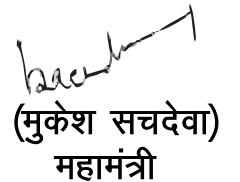 (मुकेश सचदेवा)
महामंत्री